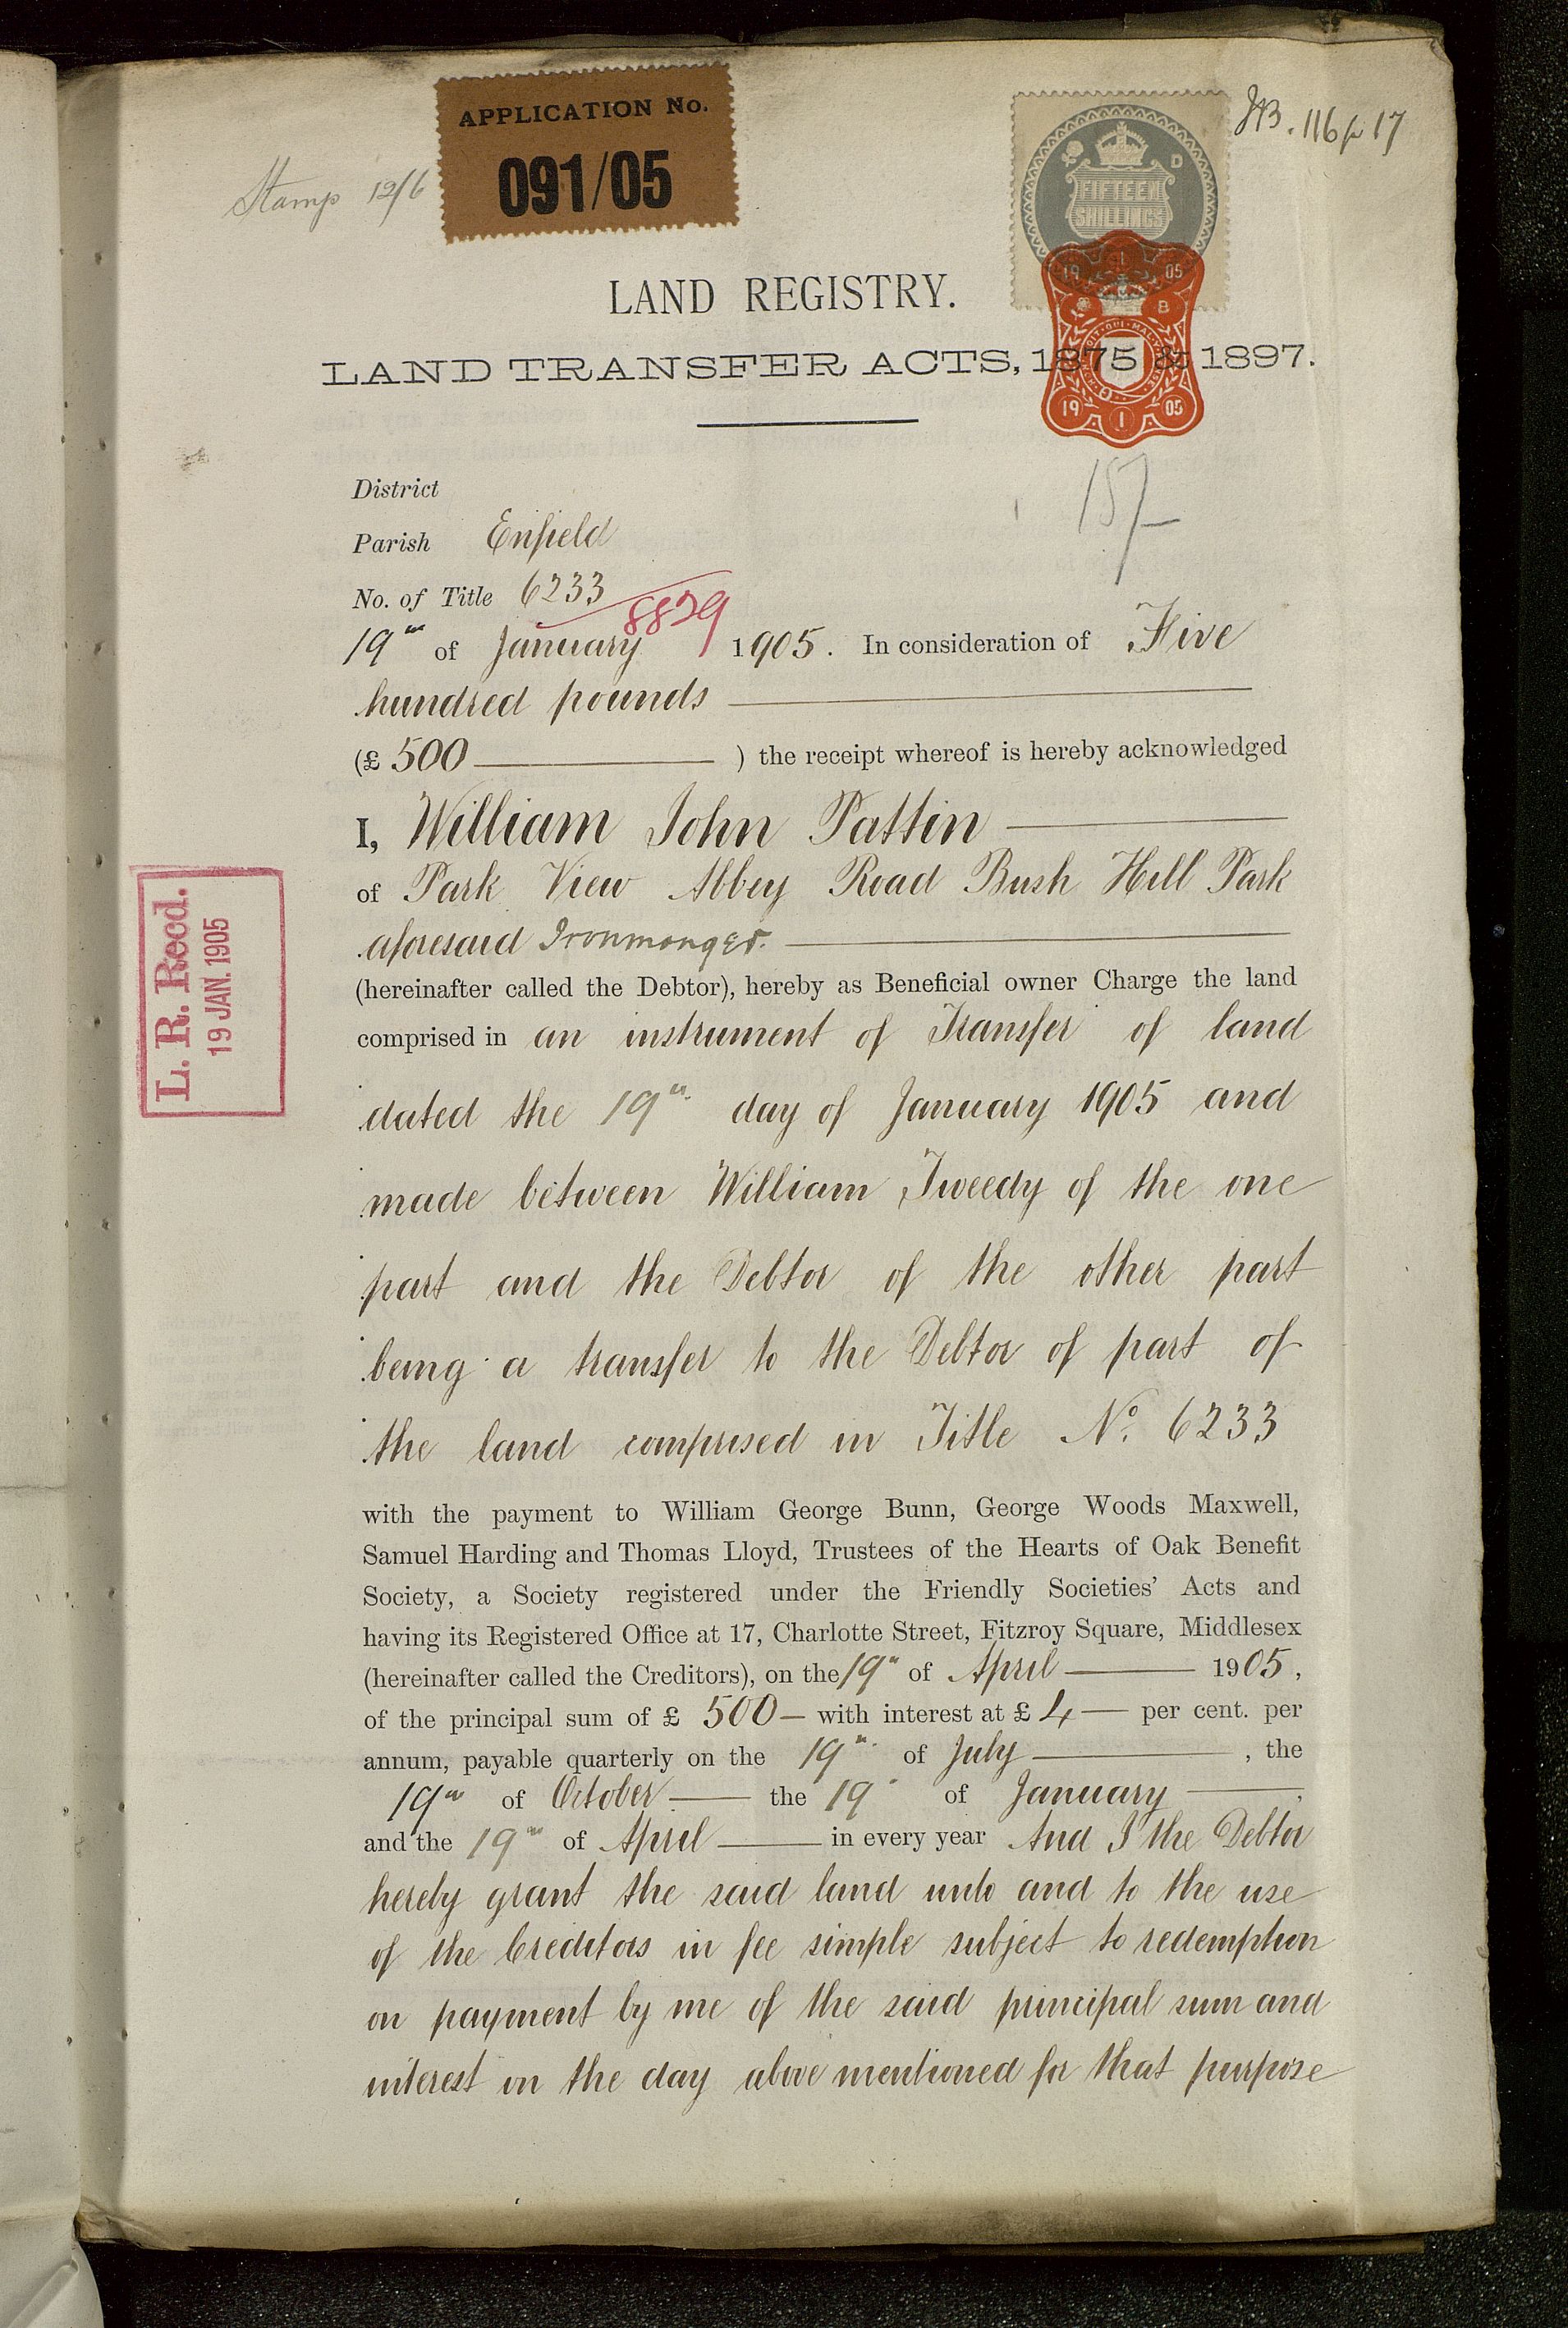 APPLICATION No.
091/05
Stamp 12/6
116 p 17
FIFTEEN
SHILLINGS
D
LAND REGISTRY.
19 I 05
B
LAND TRANSFER ACTS, 1875 & 1897.
19 I 05
15/-
District
Parish Enfield
No. of Title 6233
8829
19th of January 1905. In consideration of Five
hundred pounds
(£ 500 ) the receipt whereof is hereby acknowledged
I, William John Pattin
of Park View Abbey Road Bush Hill Park
aforesaid Ironmonger.
L. R. Recd.
19 JAN. 1905
(hereinafter called the Debtor), hereby as Beneficial owner Charge the land
comprised in an instrument of Transfer of land
dated the 19th day of January 1905 and
made between William Tweedy of the one
part and the Debtor of the other part
being a transfer to the Debtor of part of
the land comprised in Title No. 6233
with the payment to William George Bunn, George Woods Maxwell,
Samuel Harding and Thomas Lloyd, Trustees of the Hearts of Oak Benefit
Society, a Society registered under the Friendly Societies' Acts and
having its Registered Office at 17, Charlotte Street, Fitzroy Square, Middlesex
(hereinafter called the Creditors), on the 19th of April 1905,
of the principal sum of £ 500 — with interest at £ 4 — per cent. per
annum, payable quarterly on the 19th of July , the
19th of October the 19 of January
and the 19th of April in every year And I the Debtor
hereby grant the said land unto and to the use
of the Creditors in fee simple subject to redemption
on payment by me of the said principal sum and
interest on the day above mentioned for that purpose